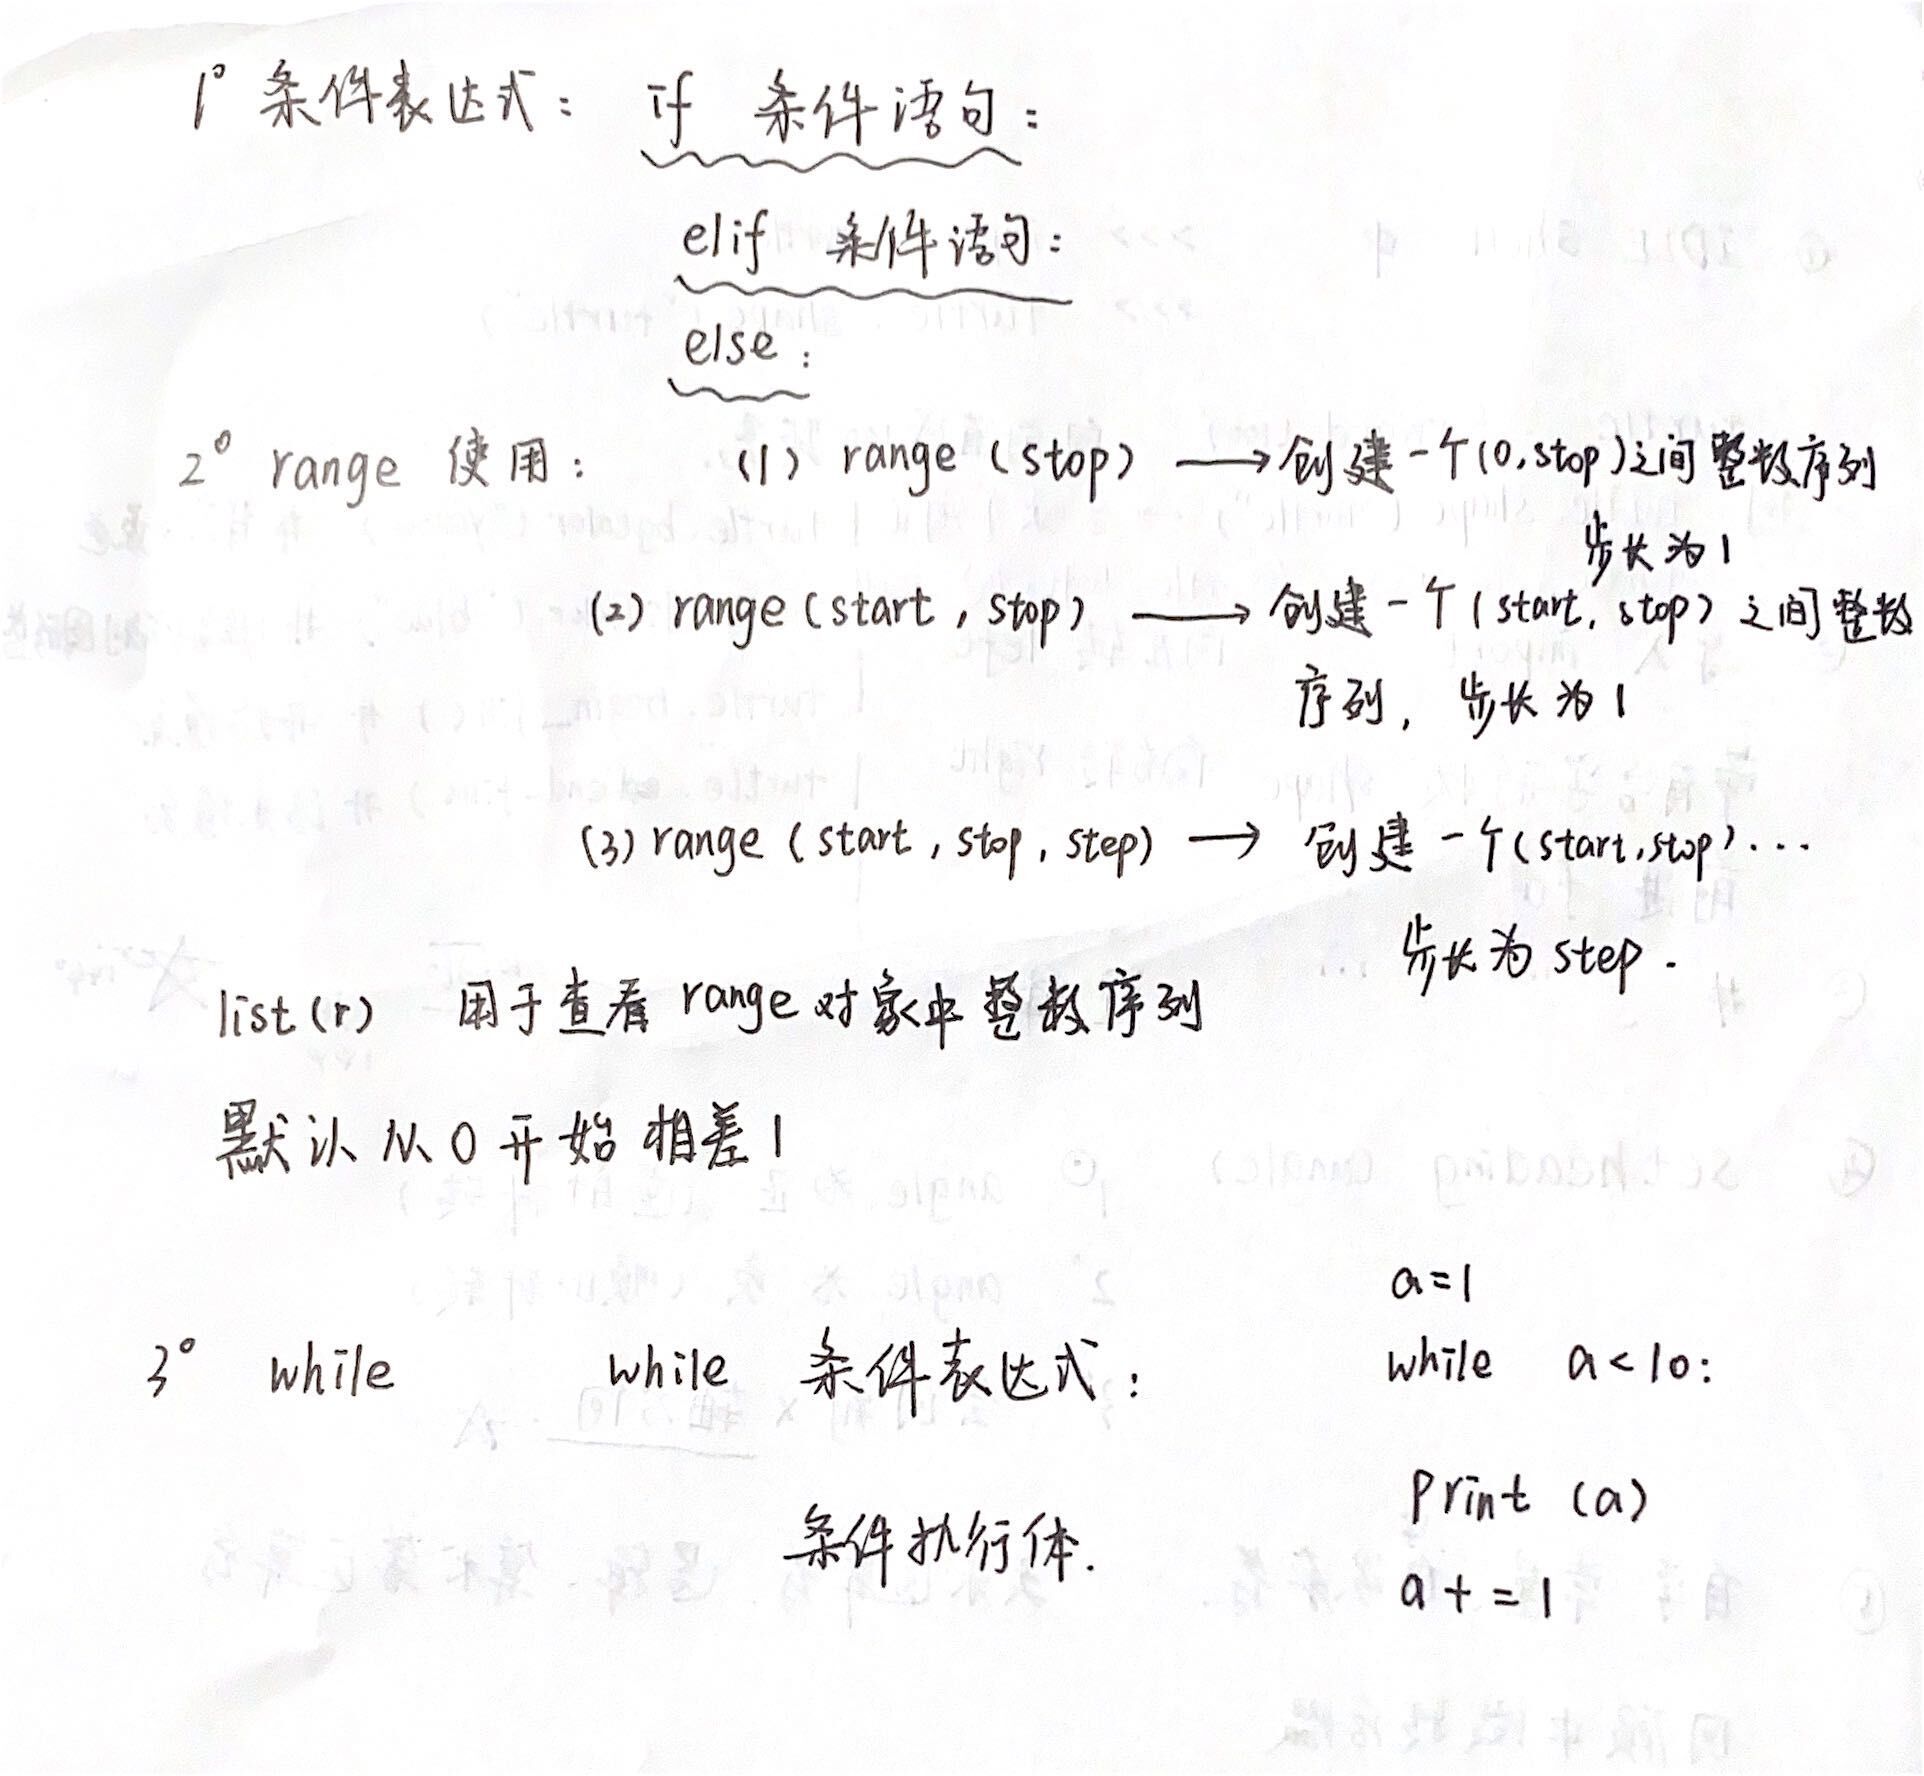 1° 条件表达式： if 条件语句：
elif 条件语句：
else：
2° range 使用： (1) range (stop) → 创建一个(0,stop)之间整数序列
步长为1
(2) range (start, stop) → 创建一个(start, stop)之间整数
序列, 步长为1
(3) range (start, stop, step) → 创建一个(start,stop)...
步长为 step.
list(r) 用于查看 range 对象中整数序列
默认从0开始相差1
a=1
3° while while 条件表达式： while a<10:
print (a)
条件执行体.
a+=1